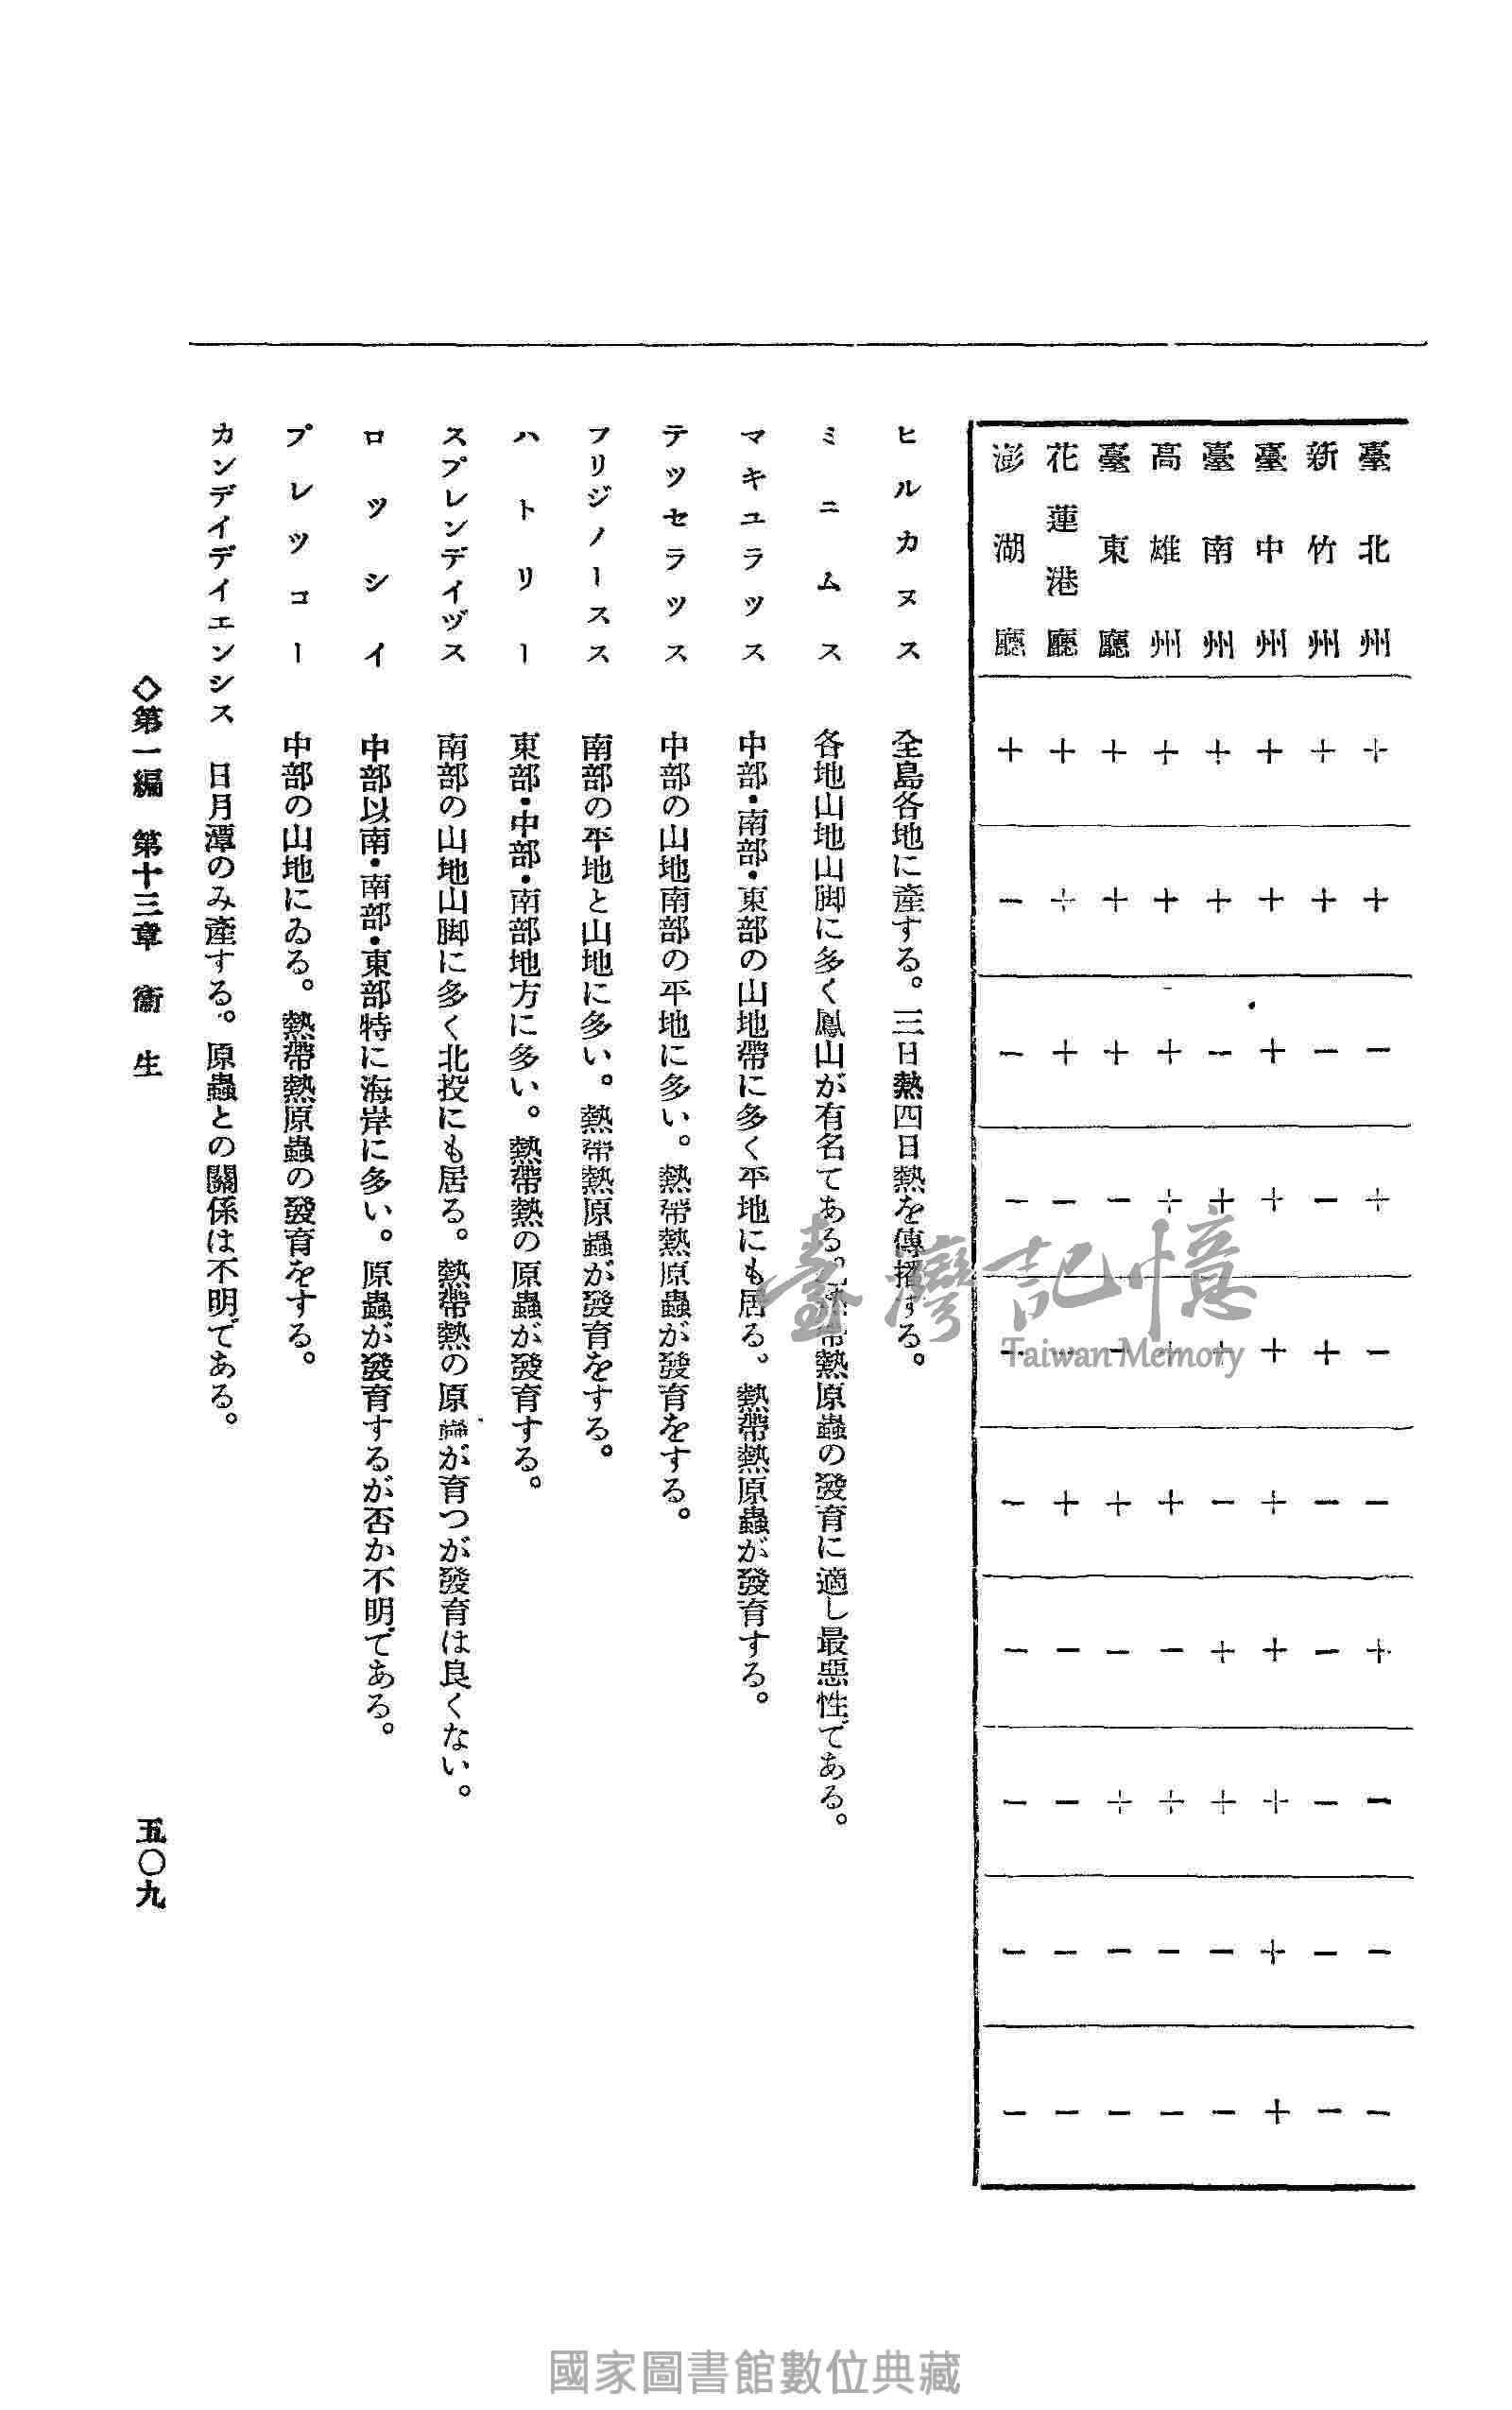 臺北州 + + − + − − + − − −
新竹州 + + − − + − − − − −
臺中州 + + + + + + + + + +
臺南州 + + − + + − + + − −
高雄州 + + + + + + − + − −
臺東廳 + + + − − + − + − −
花蓮港廳 + + + − − + − − − −
澎湖廳 + − − − − − − − − −
ヒルカヌス 全島各地に產する。三日熱四日熱を傳播する。
ミニムス 各地山地山脚に多く鳳山が有名てある。熱帶熱原蟲の發育に適し最惡性である。
マキユラツス 中部・南部・東部の山地帶に多く平地にも居る。熱帶熱原蟲が發育する。
テツセラツス 中部の山地南部の平地に多い。熱帶熱原蟲が發育をする。
フリジノースス 南部の平地と山地に多い。熱帶熱原蟲が發育をする。
ハトリー 東部・中部・南部地方に多い。熱帶熱の原蟲が發育する。
スプレンデイヅス 南部の山地山脚に多く北投にも居る。熱帶熱の原蟲が育つが發育は良くない。
ロツシイ 中部以南・南部・東部特に海岸に多い。原蟲が發育するが否か不明である。
プレツコー 中部の山地にゐる。熱帶熱原蟲の發育をする。
カンデイデイエンシス 日月潭のみ產する。原蟲との關係は不明である。
◇第一編 第十三章 衞生
五〇九
臺灣記憶
Taiwan Memory
國家圖書館數位典藏